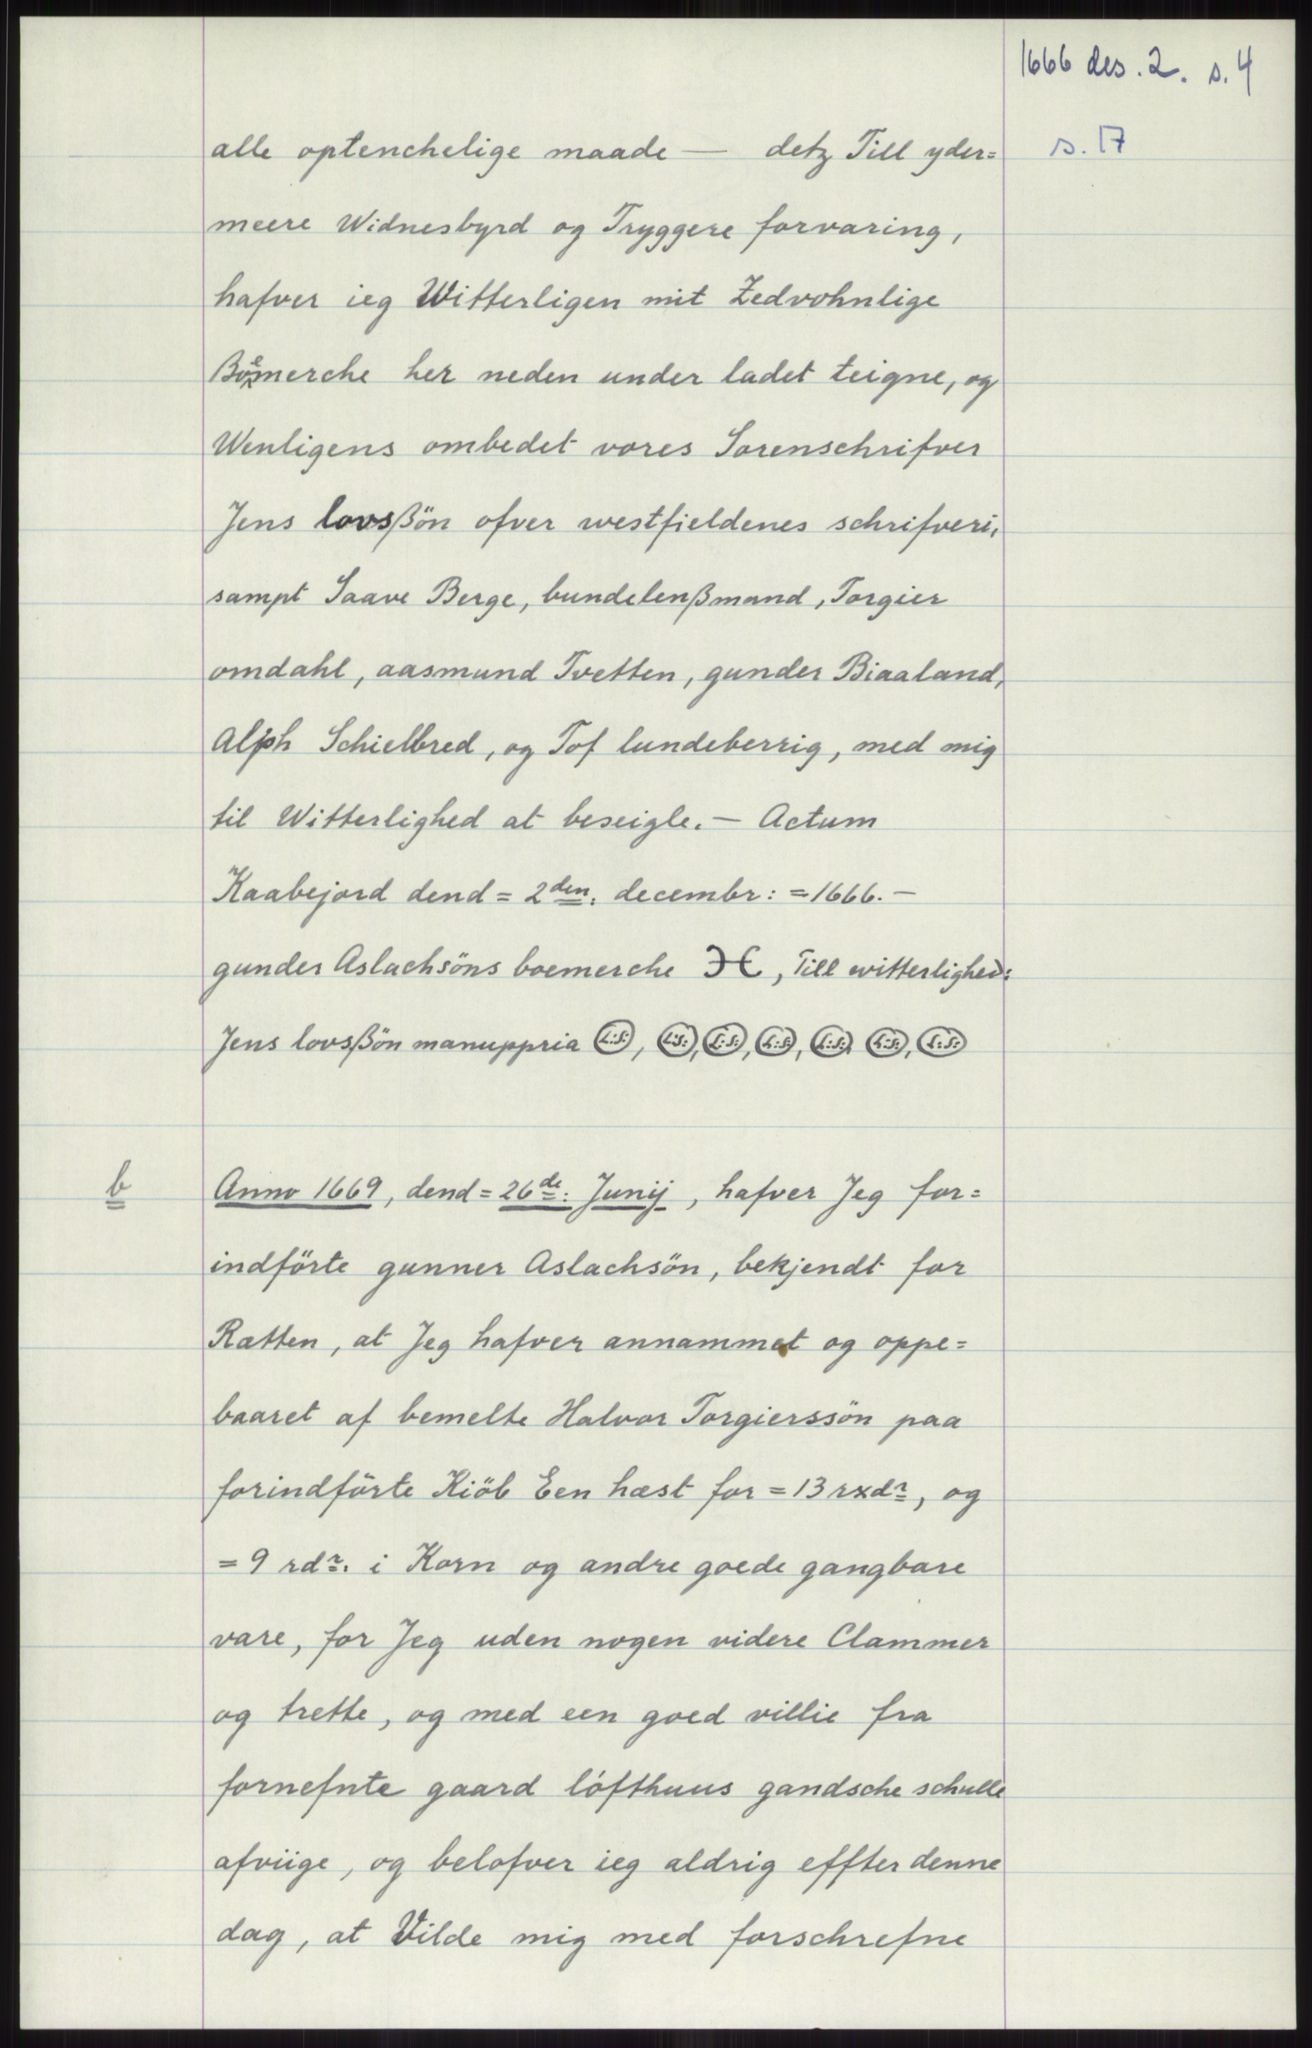 1666 des. 2. s. 4
s. 17
alle optenchelige maade — detz Till yder=
meere Widnesbyrd og Tryggere forvaring,
hafver ieg Witterligen mit Zedvohnlige
Boemerche her neden under ladet teigne, og
Wenligens ombedet vores Sorenschrifver
Jens lovsßön ofver westfieldenes schrifveri,
sampt Saave Berge, bundelenßmand, Torgier
omdahl, aasmund Tvetten, gunder Biaaland,
Alph Schielbred, og Tof lundeberrig, med mig
til Witterlighed at beseigle. — Actum
Kaabejord dend = 2den: decembr: = 1666. —
gunder Aslachsöns boemerche , Till witterlighed:
Jens lovsßön manuppria L:S:, L:S:, L:S:, L:S:, L:S: L:S:, L:S:
b
Anno 1669, dend = 26de: Junij, hafver Jeg for=
indförte gunner Aslachsön, bekjendt for
Rætten, at Jeg hafver annammet og oppe=
baaret af bemelte Halvor Torgierssön paa
forindförte Kiöb Een hæst for = 13 rxdr, og
= 9 rdr. i Korn og andre goede gangbare
vare, for Jeg uden nogen videre Clammer
og trette, og med een goed villie fra
fornefnte gaard löfthuus gandsche schulle
afviige, og belofver ieg aldrig effter denne
dag, at Vilde mig med forschrefne